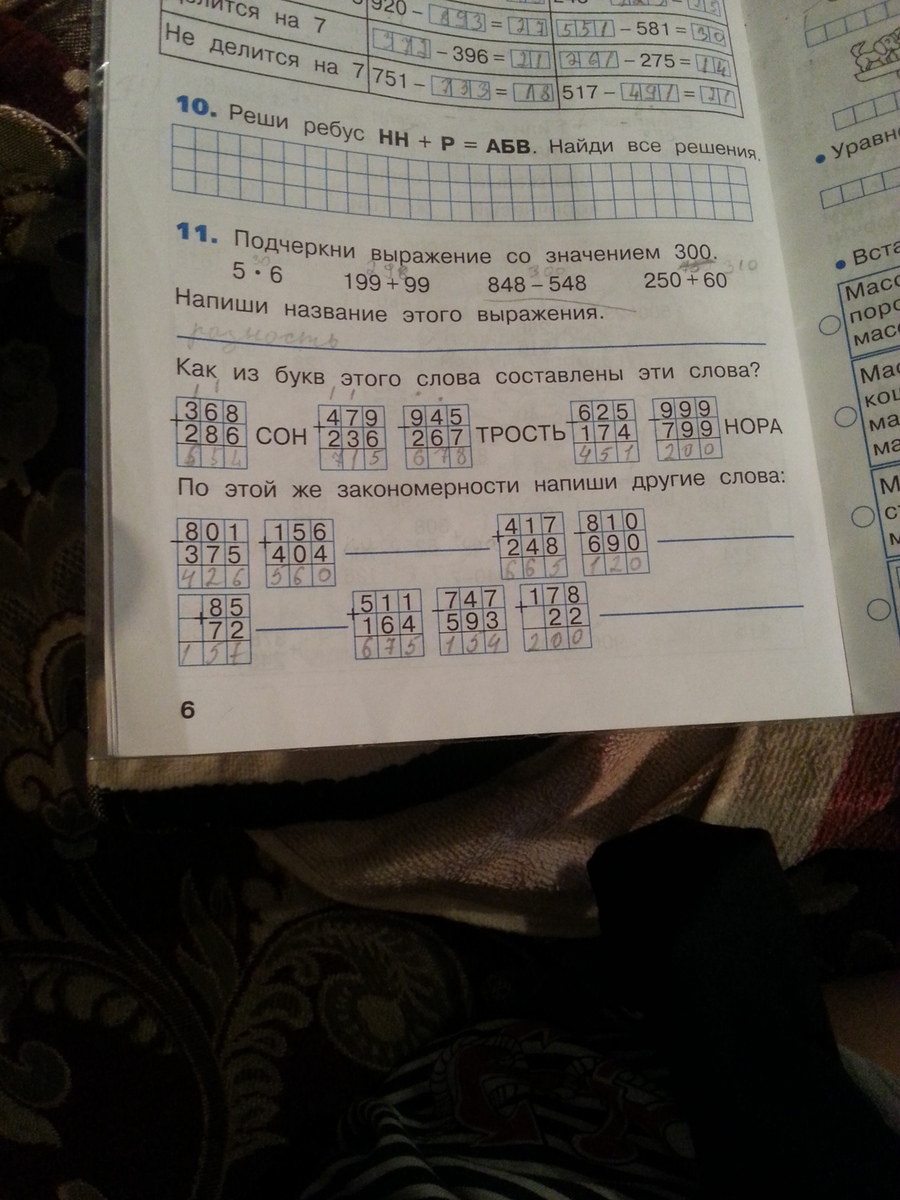 делится на 7 920 – 193 = 27 551 – 581 = 30
– 396 = 21 – 275 = 14
Не делится на 7 751 – 733 = 18 517 – 491 = 21
10. Реши ребус НН + Р = АБВ. Найди все решения.
11. Подчеркни выражение со значением 300.
30 298 300 310
5 · 6 199 + 99 848 – 548 250 + 60
Напиши название этого выражения.
разность
Как из букв этого слова составлены эти слова?
368 479 945 625 999
+ 286 СОН + 236 – 267 ТРОСТЬ – 174 – 799 НОРА
654 715 678 451 200
По этой же закономерности напиши другие слова:
801 156 417 810
– 375 + 404 + 248 – 690
426 560 665 120
85 511 747 178
+ 72 + 164 – 593 + 22
157 675 154 200
6
• Уравн
• Вста
Масс
поро
масс
Мас
кош
ма
ма
М
ст
м